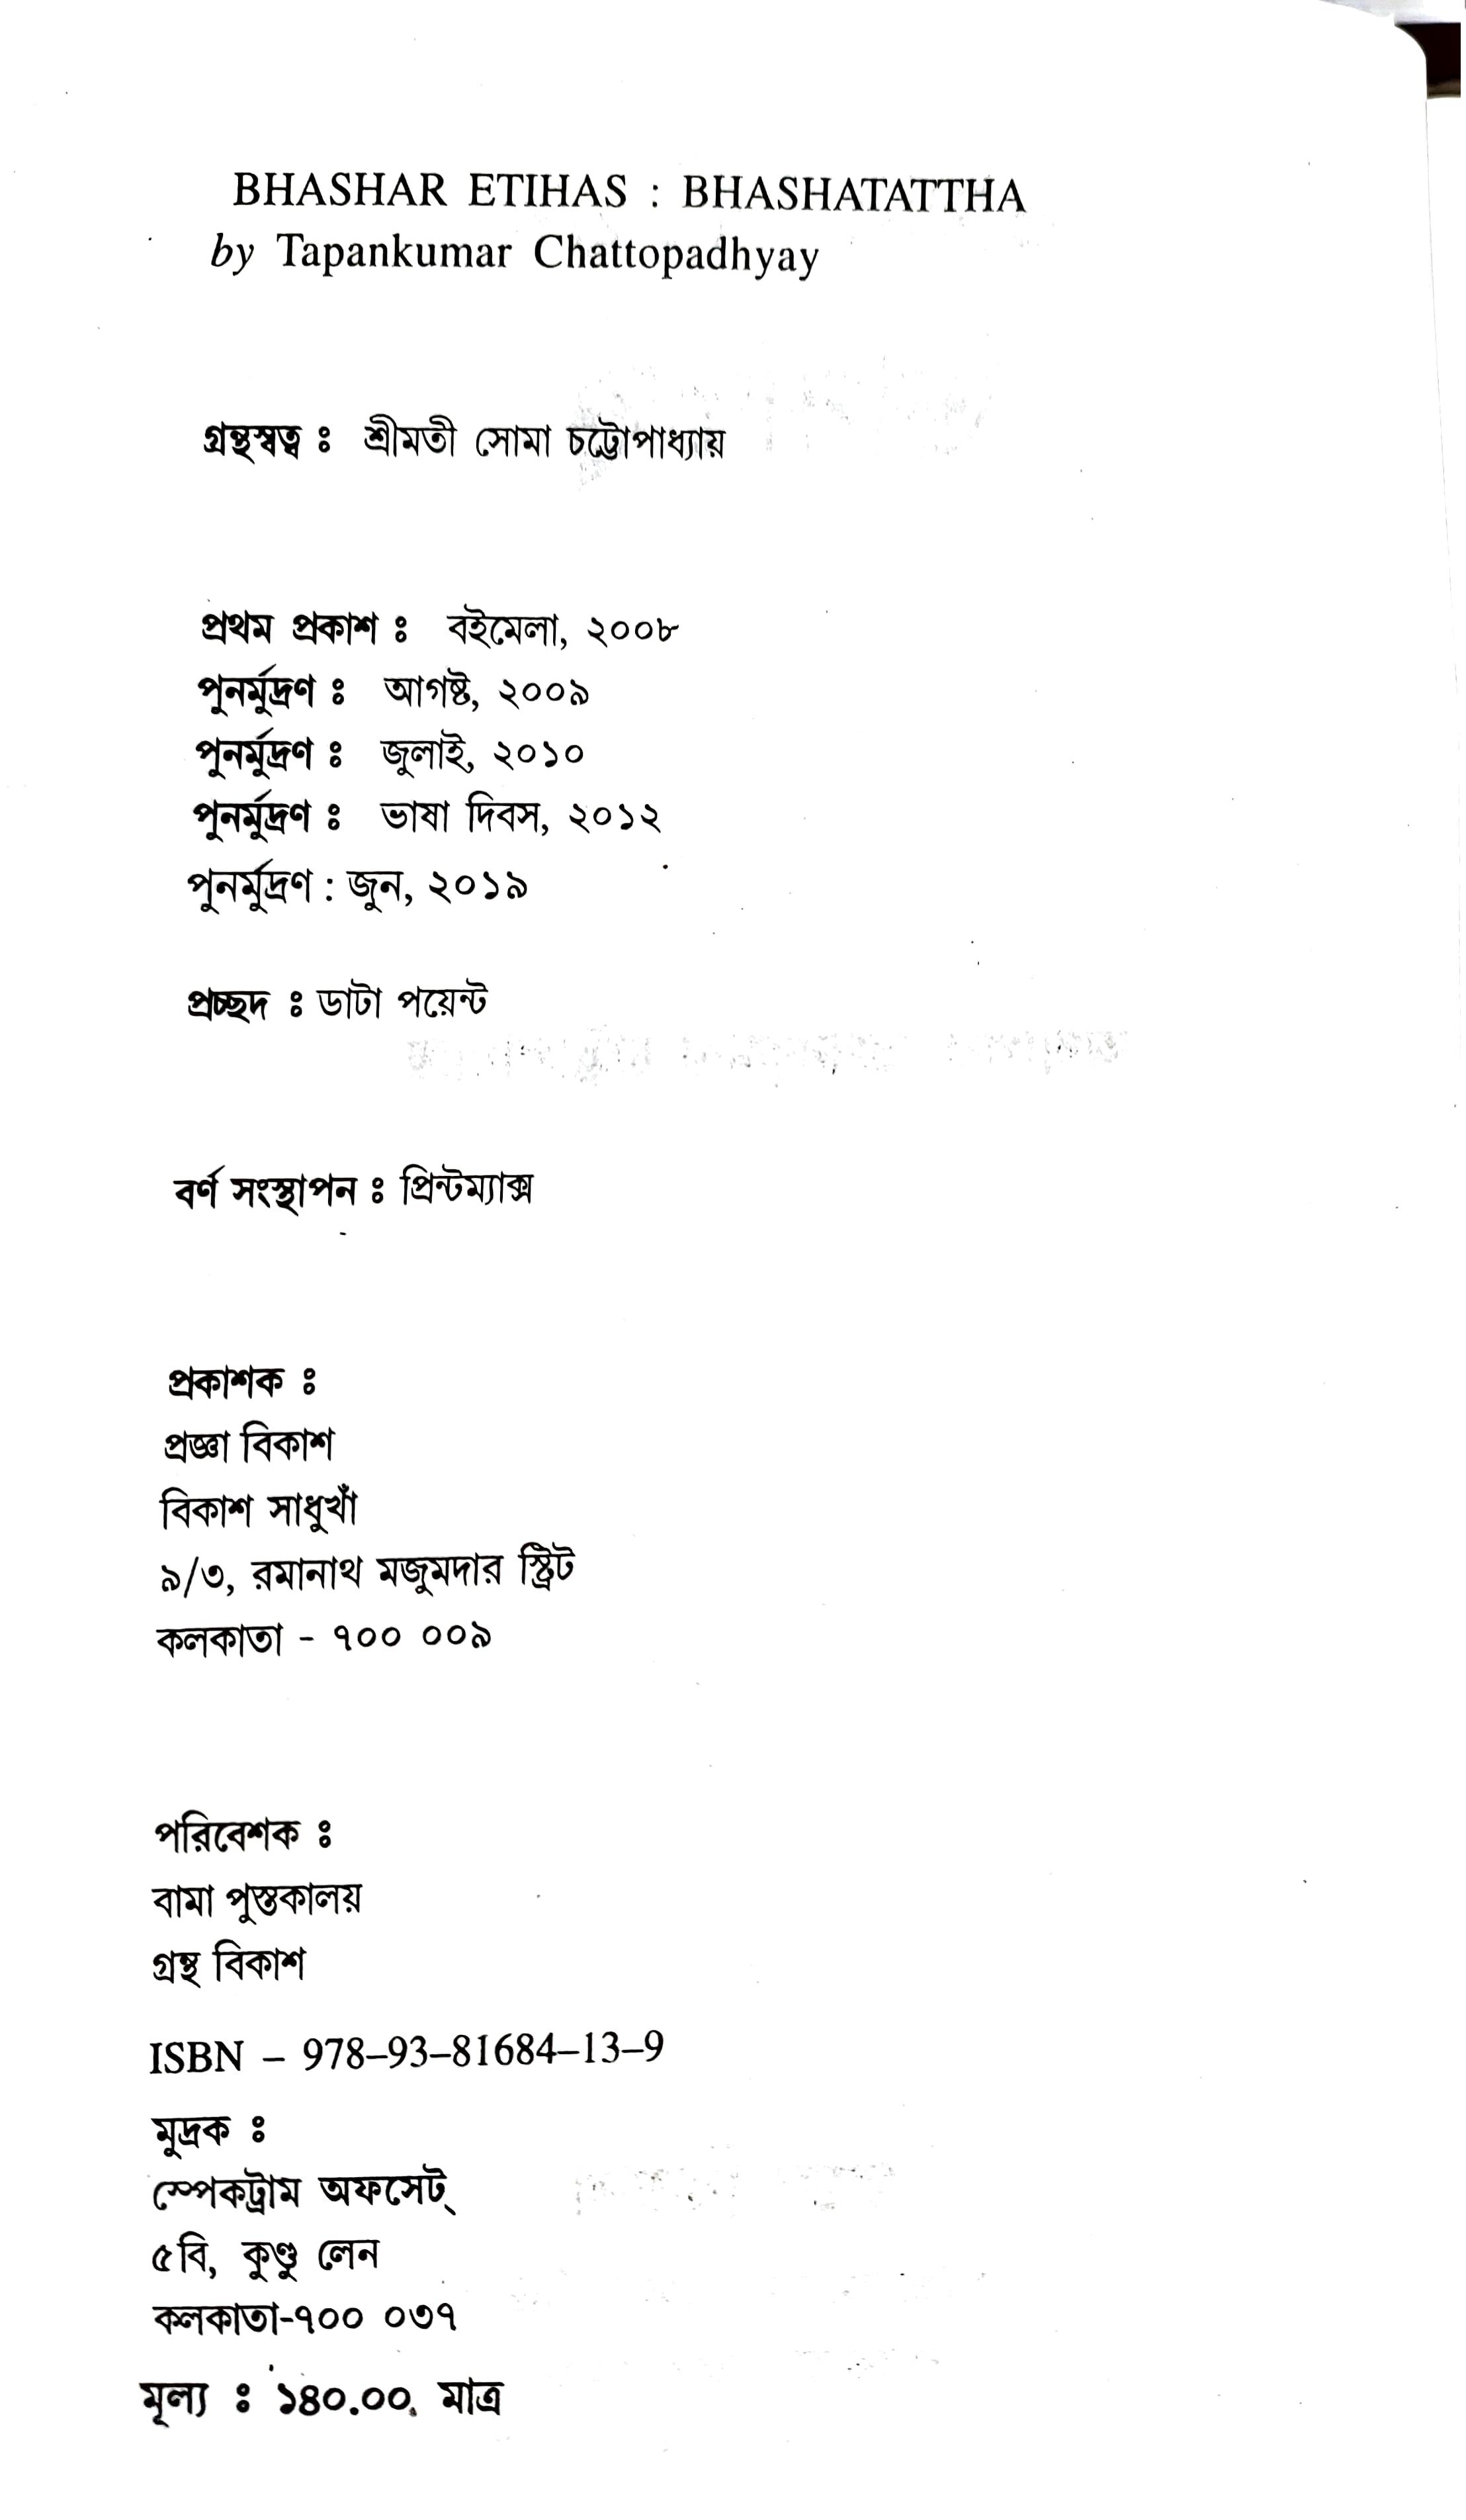 BHASHAR ETIHAS : BHASHATATTHA
by Tapankumar Chattopadhyay
গ্রন্থস্বত্ব ঃ শ্রীমতী সোমা চট্টোপাধ্যায়
প্রথম প্রকাশ ঃ বইমেলা, ২০০৮
পুনর্মুদ্রণ ঃ আগষ্ট, ২০০৯
পুনর্মুদ্রণ ঃ জুলাই, ২০১০
পুনর্মুদ্রণ ঃ ভাষা দিবস, ২০১২
পুনর্মুদ্রণ : জুন, ২০১৯
প্রচ্ছদ ঃ ডাটা পয়েন্ট
বর্ণ সংস্থাপন ঃ প্রিন্টম্যাক্স
প্রকাশক ঃ
প্রজ্ঞা বিকাশ
বিকাশ সাধুখাঁ
৯/৩, রমানাথ মজুমদার স্ট্রিট
কলকাতা - ৭০০ ০০৯
পরিবেশক ঃ
বামা পুস্তকালয়
গ্রন্থ বিকাশ
ISBN – 978–93–81684–13–9
মুদ্রক ঃ
স্পেকট্রাম অফসেট্
৫বি, কুণ্ডু লেন
কলকাতা-৭০০ ০৩৭
মূল্য ঃ ১৪০.০০. মাত্র